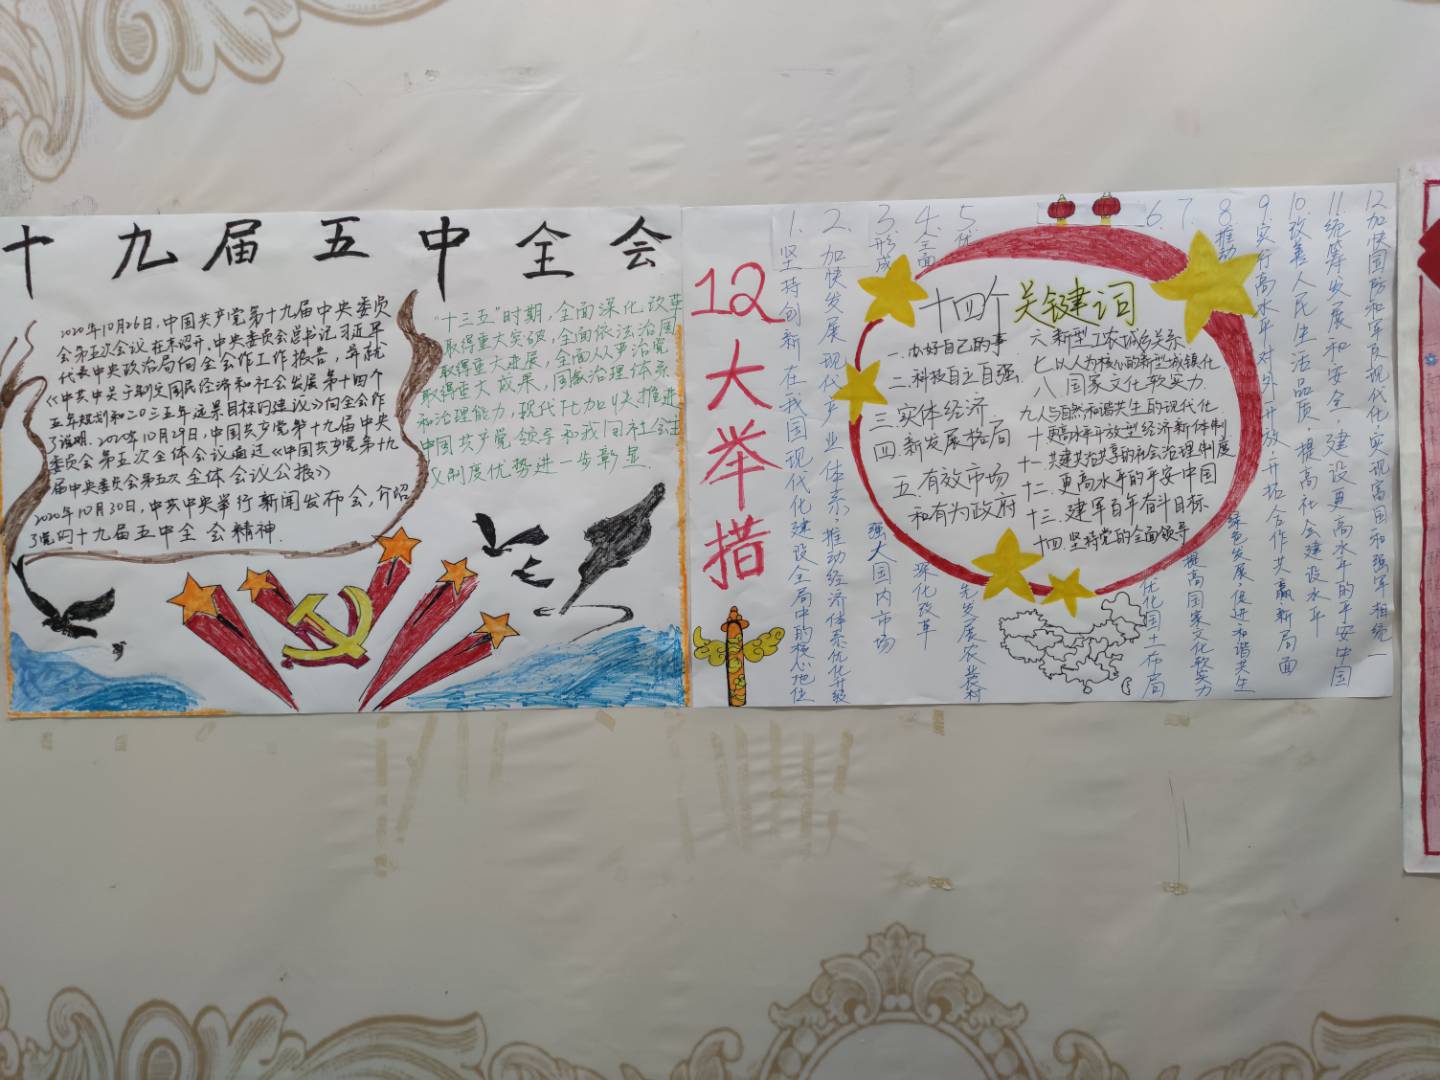 十九届五中全会
2020年10月26日,中国共产党第十九届中央委员
会第五次会议在京召开,中央委员会总书记习近平
代表中央政治局向全会作工作报告,并就
《中共中央于制定国民经济和社会发展第十四个
五年规划和二〇三五年远景目标的建议》向全会作
了说明.2020年10月29日,中国共产党第十九届中央
委员会第五次全体会议通过《中国共产党第十九
届中央委员会第五次全体会议公报》
2020年10月30日,中共中央举行新闻发布会,介绍
了党的十九届五中全会精神.
"十三五"时期,全面深化改革
取得重大突破,全面依法治国
取得重大进展,全面从严治党
取得重大成果,国家治理体系
和治理能力,现代化加快推进
中国共产党领导和我国社会主
义制度优势进一步彰显.
12大举措
1.坚持创新在我国现代化建设全局中的核心地位
2.加快发展现代产业体系,推动经济体系优化升级
3.形成强大国内市场
4.全面深化改革
5.优先发展农业农村
十四个关键词
一.办好自己的事
二.科技自立自强.
三.实体经济.
四.新发展格局
五.有效市场
和有为政府
六.新型工农城乡关系
七.以人为核心的新型城镇化
八.国家文化软实力.
九.人与自然和谐共生的现代化
十.更高水平开放型经济新体制
十一.共建共治共享的社会治理制度
十二.更高水平的平安中国
十三.建军百年奋斗目标
十四.坚持党的全面领导
6.优化国土布局
7.提高国家文化软实力
8.推动绿色发展,促进和谐共生
9.实行高水平对外开放,开拓合作共赢新局面
10.改善人民生活品质,提高社会建设水平
11.统筹发展和安全,建设更高水平的平安中国
12.加快国防和军队现代化,实现富国和强军相统一